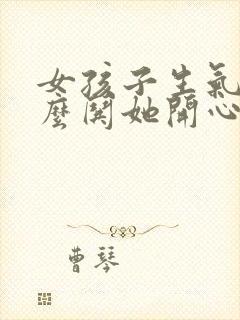 女孩子生氣
麼鬨她開心
曹琴